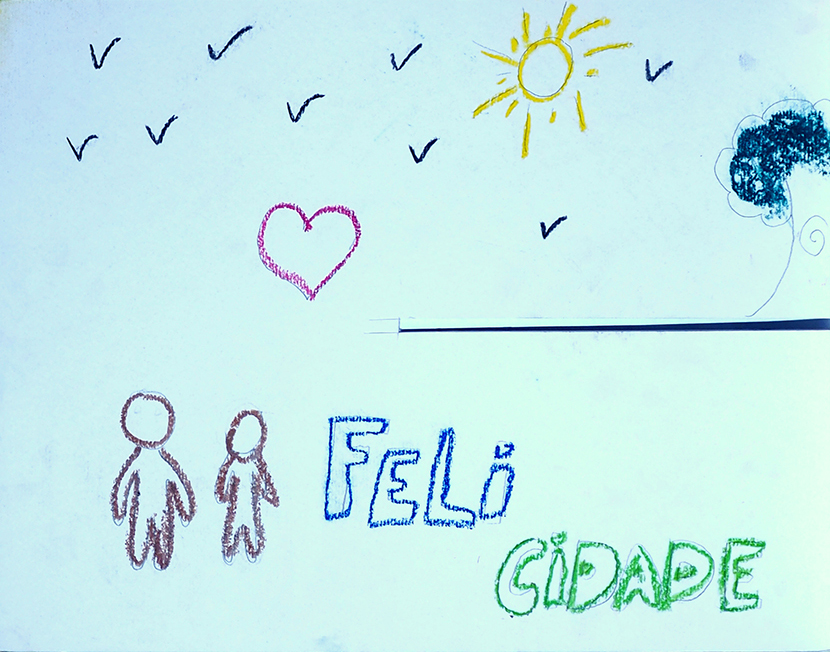 FELi
CiDADE